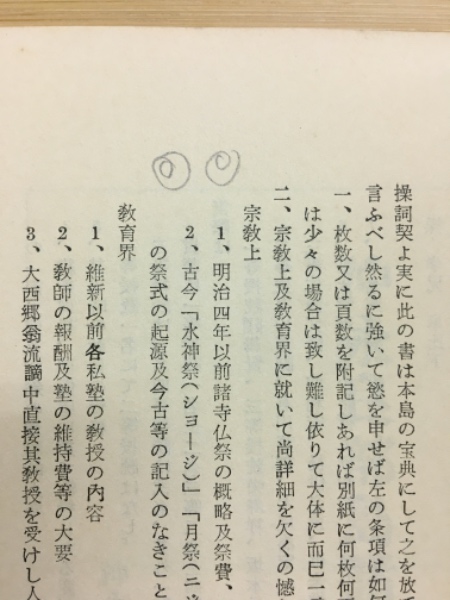 操詞契よ実に此の書は本島の宝典にして之を放
言ふべし然るに強いて慾を申せば左の条項は如
一、枚数又は頁数を附記しあれば別紙に何枚何
は少々の場合は致し難し依りて大体に而巳一
二、宗教上及教育界に就いて尚詳細を欠くの憾
宗教上
1、明治四年以前諸寺仏祭の概略及祭費、
2、古今「水神祭(ショージ)」「月祭(ニ
の祭式の起源及今古等の記入のなきこと
教育界
1、維新以前各私塾の教授の内容
2、教師の報酬及塾の維持費等の大要
3、大西郷翁流謫中直接其教授を受けし人